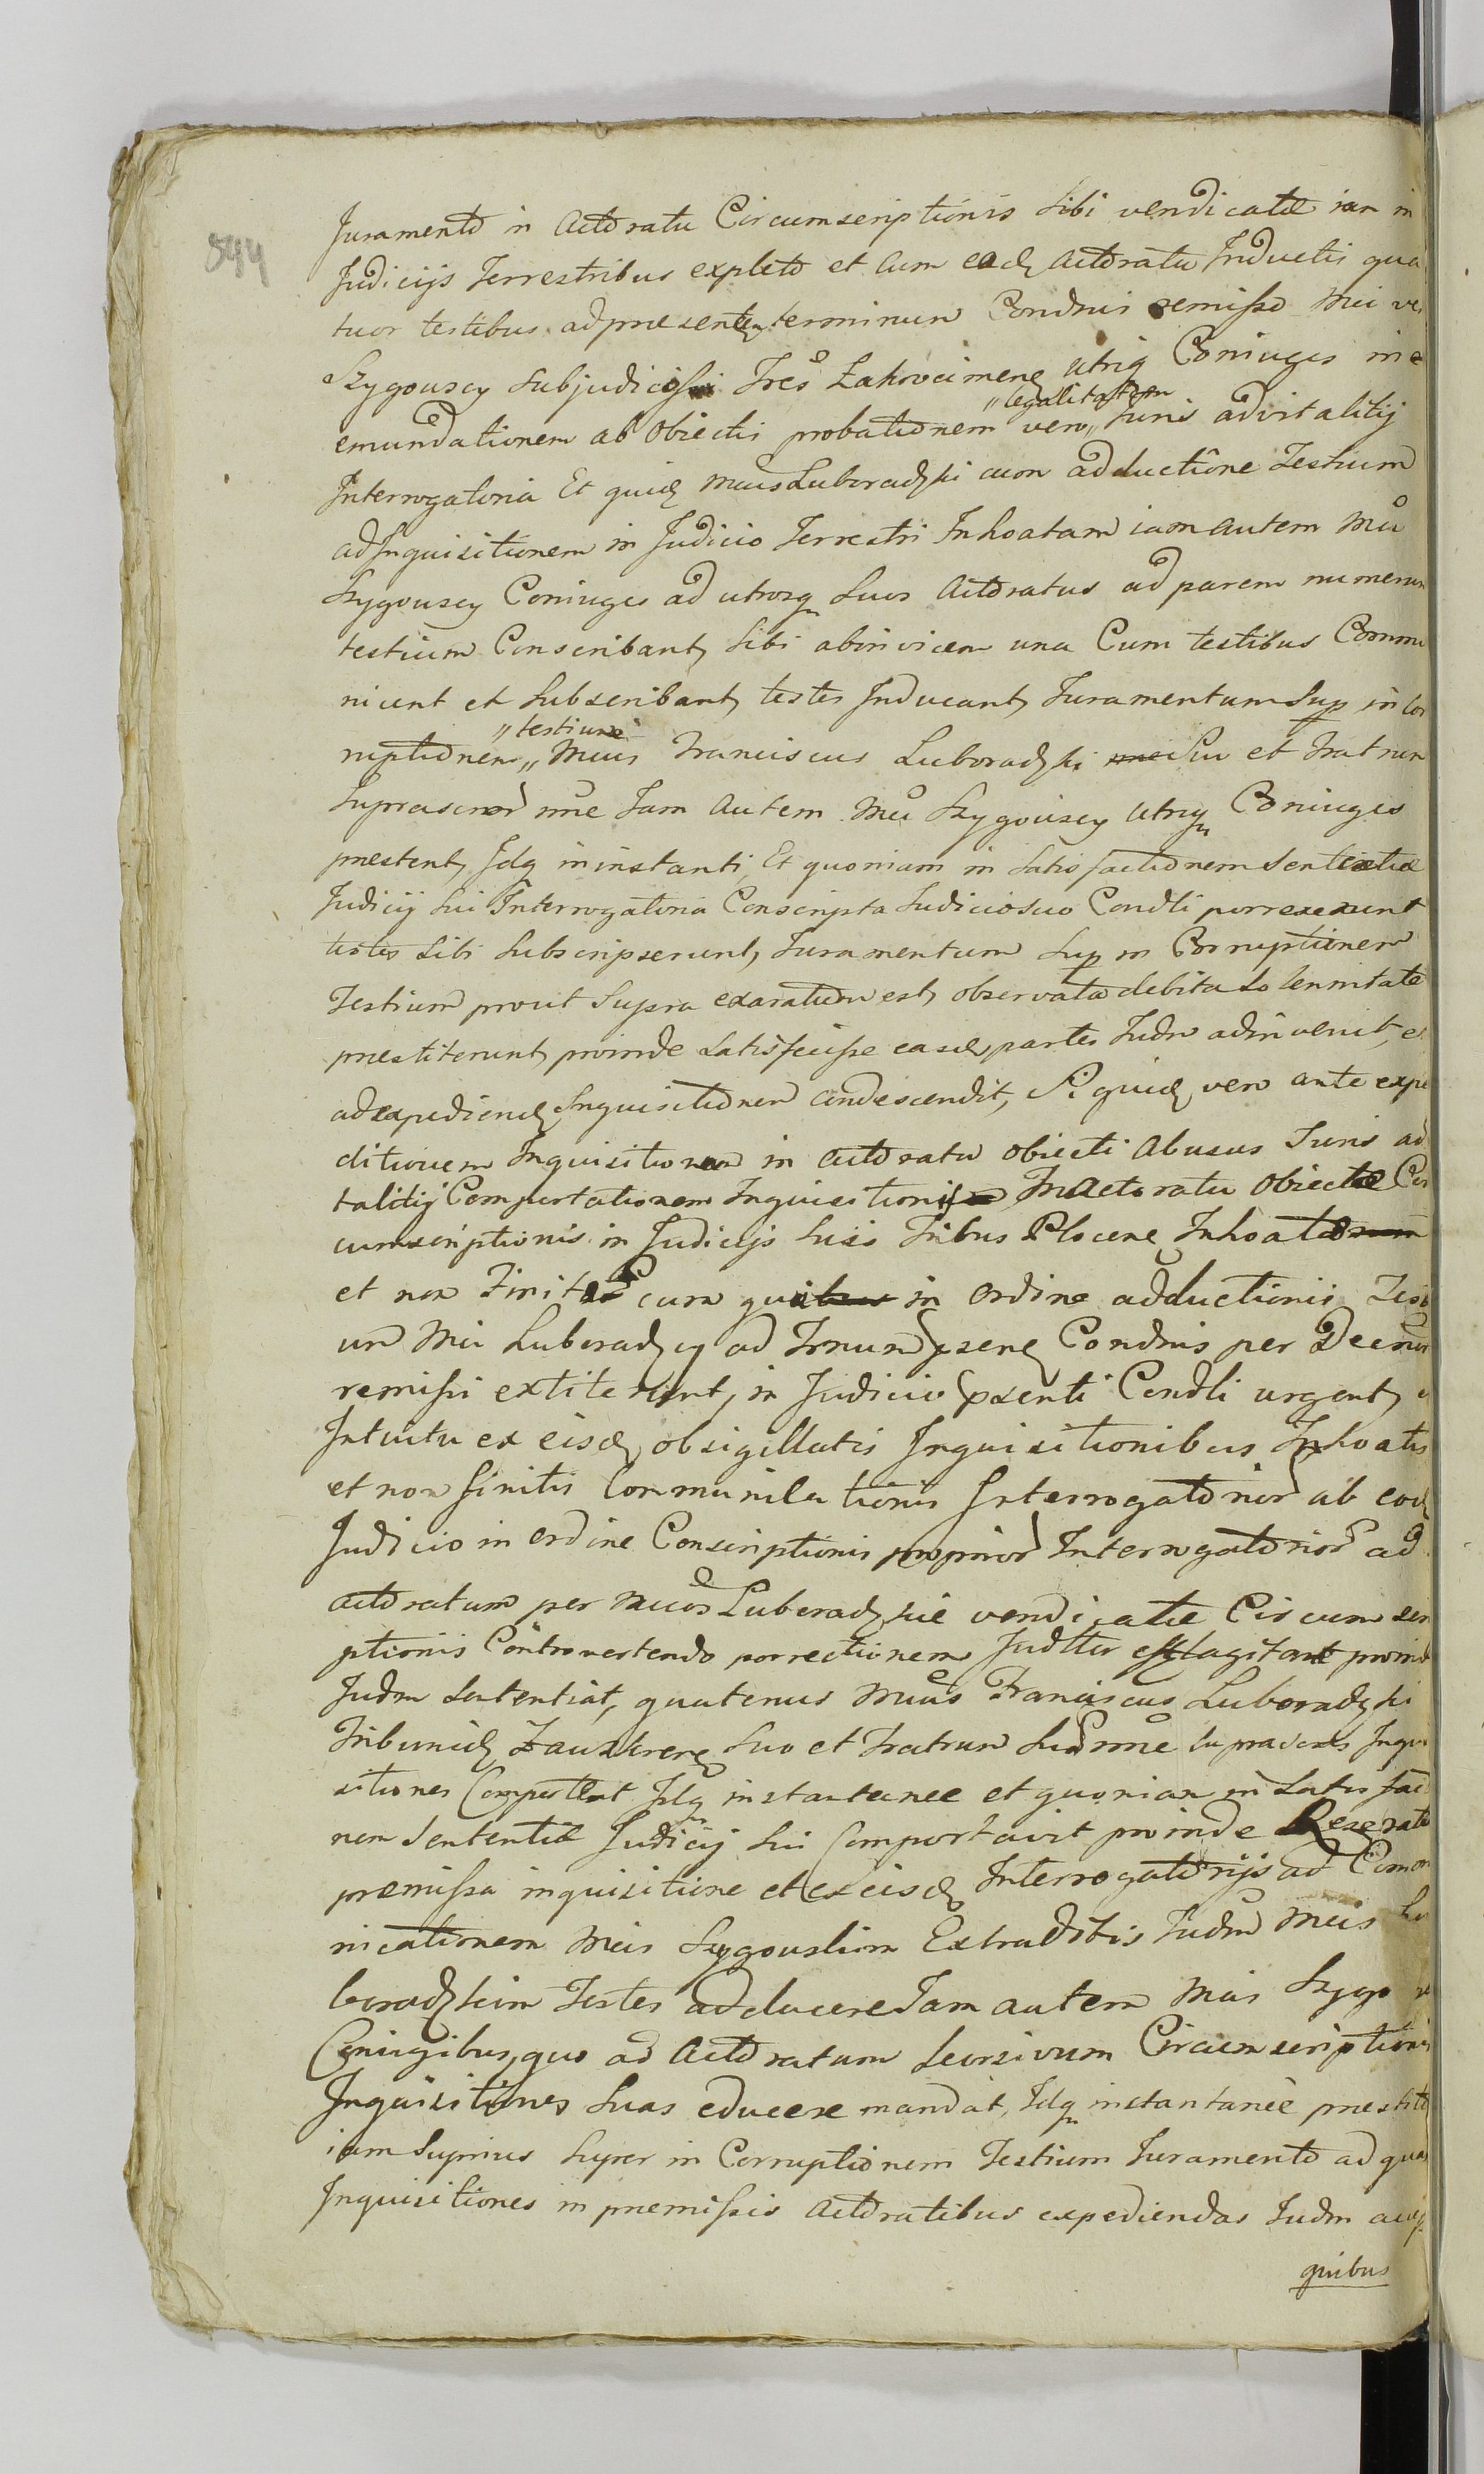 844
Juramento in Actoratu Circumscriptionis sibi vendicatæ iam in
Judicijs Terrestribus expleto et cum eadq Actoratu Inductis qua
tuor testibus ad præsentem terminum Condnis remisso Mci ve
Szygowscy Subjudicosi Tres Zakrocimenq utriq Coniuges in e
emundationem ab obiectis probationem vero „ Juris advitalitij
„ legalitatem
Interrogatoria Et quidq Mcus Luboradzki cum adductione Testium
ad Inquisitionem in Judicio Terrestri Inhoatam iam autem Mci
Szygowscy Coniuges ad utrosq Suos Actoratus ad parem numerum
testium Conscribant, Sibi abinvicem una Cum testibus Commu
nicent et Subscribant, testes Inducant, Juramentum Sup in cor
ruptionem „ Mcus Franciscus Luboradzki Suo et Fratrum
„ testium
Suprascror nne Jam Autem Mci Szygowscy utriq Coniuges
præstent, Idq in instanti, Et quoniam in Satisfactionem Sententiæ
Judicij Sui Interrogatoria Conscripta Judicio Suo Condli porrexerunt
testes Sibi Subscripserunt, Juramentum Sup in Corruptionem
Testium prout Supra exaratum est, observata debita Solennitate
præstiterunt, proinde Satisfecisse easdq partes Judm adinvenit, et
ad expediendq Inquisitionem condescendit, Si quidq vero ante expe
ditionem Inquisitionem in Actoratu obiecti Abusus Juris ad
talitij Comportationem Inquisitionis In Actoratu Obiectæ Cir
cumscriptionis in Judicijs Suis Tribus Plocenq Inhoatæ
et non Finitæ Cum qua in Ordine adductionis Testi
um Mci Luboradzcy ad Trnum psenq Condnis per Decrum
remissi extiterunt, in Judicio psenti Condli urgent,
Intuitu ex eisdq obsigillatis Inquisitionibus Inhoatis
et non finitis Communicationis Interrogatorior ab eodq
Judicio in Ordine Conscriptionis proprior Interrogatorior ad
actoratum per Mcos Luboradzkie vendicatæ Circumscri
ptionis Controvertendo porrectionem Judlter efflagitant proinde
Judm Sententiat, quatenus Mcus Franciscus Luboradzki
Tribunidq Zauskrenq Suo et Fratrum Suor nne supra Inqui
sitiones Comportent Idq instantanee et quoniam in Satisfac
nem Sententiæ Judicij Sui Comportavit proinde Reserata
premissa inquisitione et ex eisdq Interrogatorijs ad Commu
nicationem Mcis Szygowskim Extraditis Judm Mcis Lu
boradzkim Testes adducere Jam autem Mcis Szygo
Coniugibus, quo ad Actoratum Seorsivum Circumscriptionis
Inquisitiones Suas educere mandat, Idq instantanee præstito
iam Suprius Super in Corruptionem Testium Juramento ad quas
Inquisitiones in præmissis Actoratibus expediendas Judm
quibus